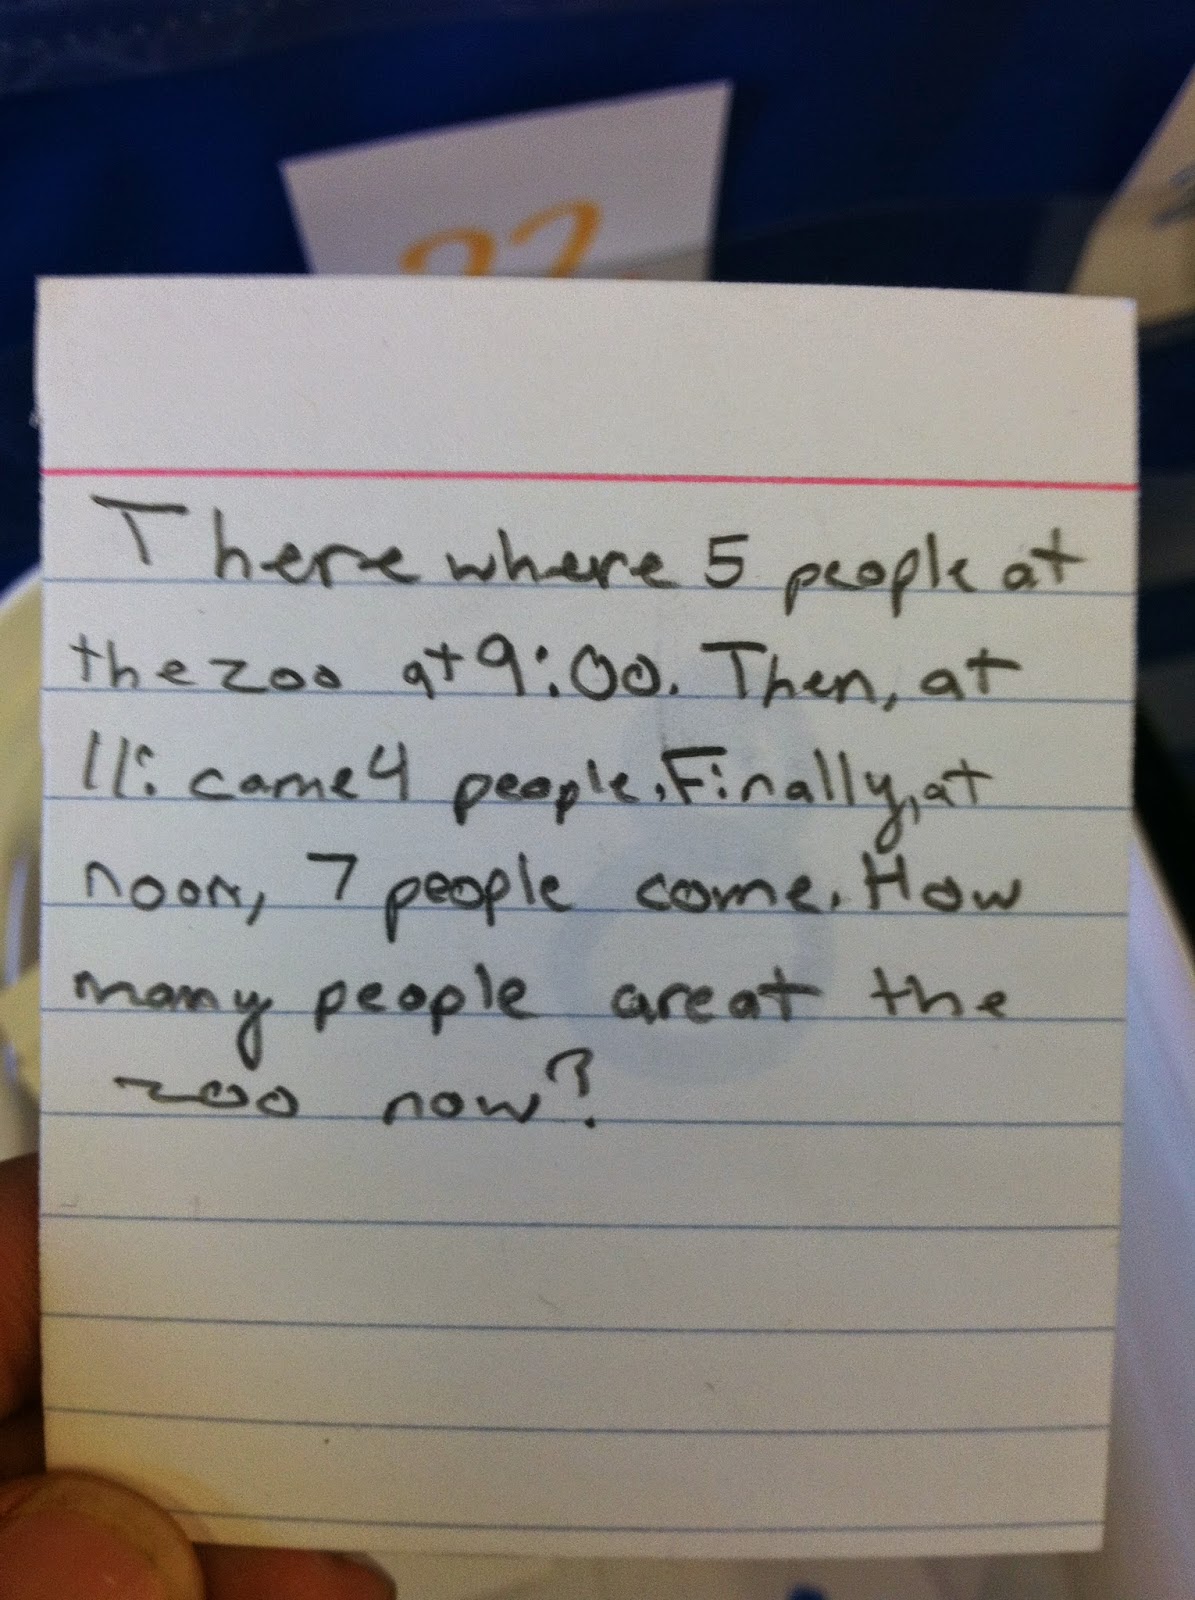 22
There where 5 people at
the zoo at 9:00. Then, at
11: came 4 people. Finally, at
noon, 7 people come. How
many people are at the
zoo now?